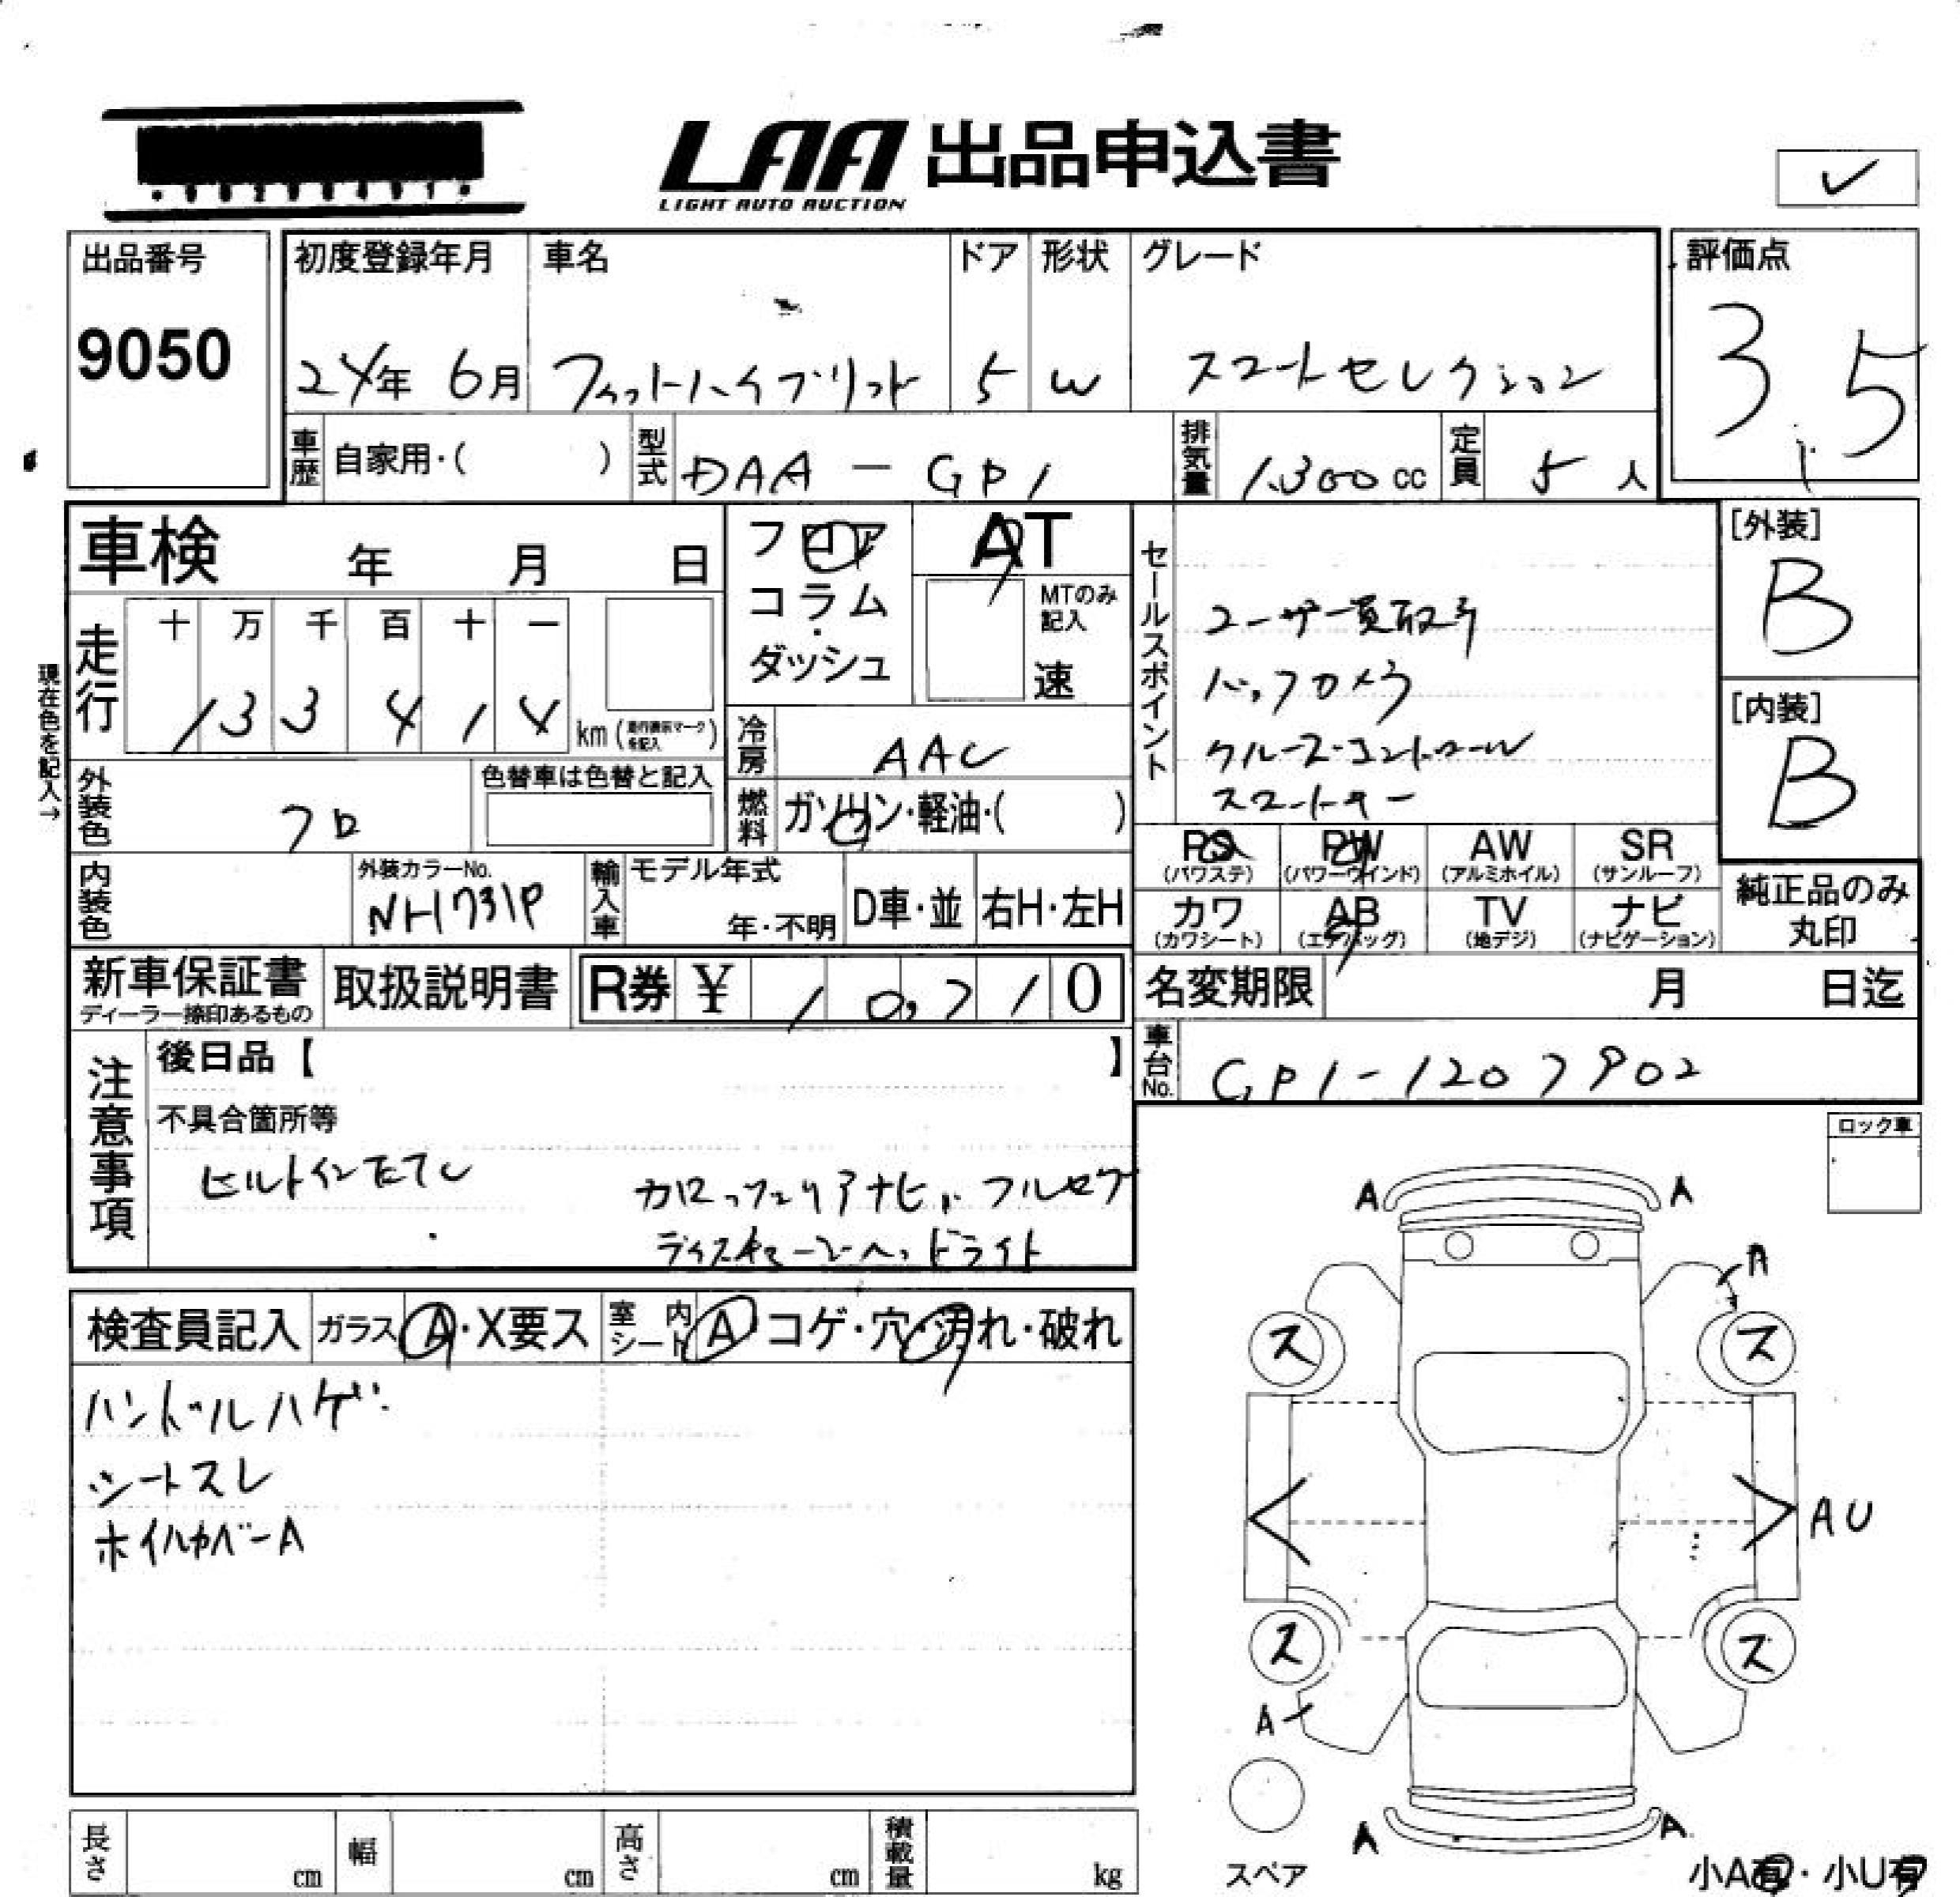 LAA 出品申込書
LIGHT AUTO AUCTION
出品番号
9050
初度登録年月
24年 6月
車名
フィットハイブリッド
ドア
5
形状
W
グレード
スマートセレクション
評価点
3.5
車歴
自家用・( )
型式
DAA-GP1
排気量
1,300 cc
定員
5 人
車検 年 月 日
フロア
コラム
・
ダッシュ
AT
MTのみ
記入
速
セールスポイント
ユーザー買取り
バックカメラ
クルーズコントロール
スマートキー
[外装]
B
[内装]
B
現在色を記入→
走行
十 万 千 百 十 一
1 3 3 4 1 4
km(走行表示マークを記入)
冷房
AAC
外装色
クロ
色替車は色替と記入
燃料
ガソリン・軽油・( )
PS
(パワステ)
PW
(パワーウインド)
AW
(アルミホイル)
SR
(サンルーフ)
内装色
外装カラーNo.
NH731P
輸入車
モデル年式
年・不明
D車・並
右H・左H
カワ
(カワシート)
AB
(エアバッグ)
TV
(地デジ)
ナビ
(ナビゲーション)
純正品のみ
丸印
新車保証書
ディーラー捺印あるもの
取扱説明書
R券 ¥ 10,710
名変期限 月 日迄
車台No.
GP1-1207902
注意事項
後日品【 】
不具合箇所等
ビルトインETC
カロッツェリアナビ、フルセグ
ディスチャージヘッドライト
ロック車
検査員記入
ガラス A・X要ス
室内シート A・コゲ・穴・汚れ・破れ
ハンドルハゲ
シートスレ
ホイルカバーA
A
A
A
ス
ス
AU
ス
ス
A
A
A
スペア
小A有・小U有
長さ cm
幅 cm
高さ cm
積載量 kg